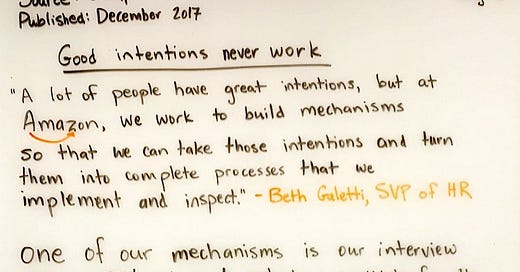 Published: December 2017
Good intentions never work
"A lot of people have great intentions, but at
Amazon, we work to build mechanisms
so that we can take those intentions and turn
them into complete processes that we
implement and inspect." - Beth Galetti, SVP of HR
One of our mechanisms is our interview